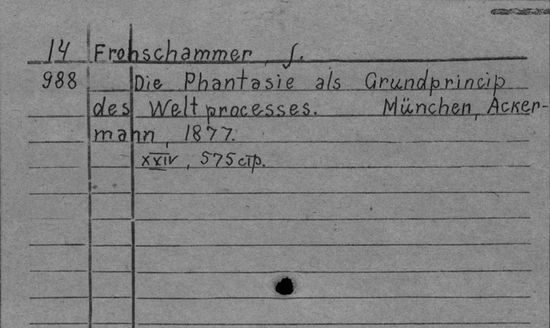 14 Frohschammer, J.
988 Die Phantasie als Grundprincip
des Weltprocesses. München, Acker-
mann, 1877.
XXIV, 575 стр.